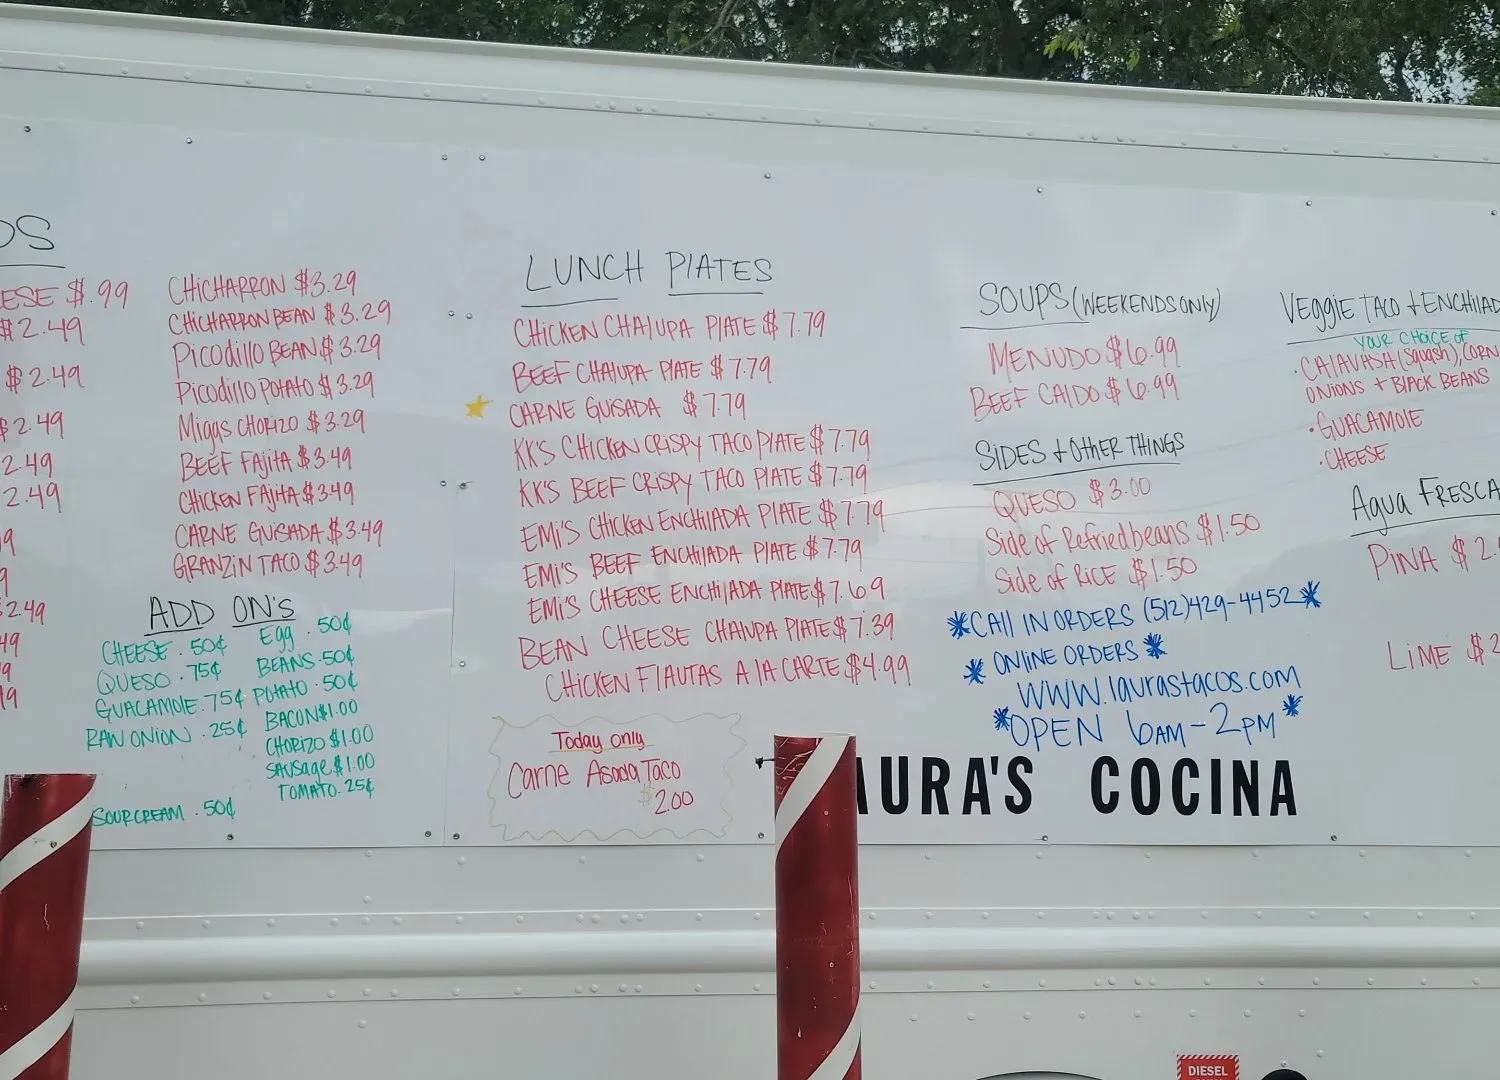 OS
ESE $.99
$2.49
$2.49
$2.49
2.49
2.49
$2.49
CHICHARRON $3.29
CHICHARRON BEAN $3.29
Picadillo BEAN $3.29
Picadillo POTATO $3.29
Migas CHORIZO $3.29
BEEF FAjitA $3.49
CHICKEN FAjitA $3.49
CARNE GUiSADA $3.49
GRANZiN TACO $3.49
ADD ON'S
CHEESE . 50¢
QUESO . 75¢
GUACAMOlE . 75¢
RAW ONION . 25¢
SOUR CREAM . 50¢
Egg . 50¢
BEANS . 50¢
POtAtO . 50¢
BACON $1.00
CHORIZO $1.00
SAUSAge $1.00
TOMATO . 25¢
LUNCH PlATES
CHICKEN CHAlUPA PlATE $7.79
BEEF CHAlUPA PlATE $7.79
CARNE GUISADA $7.79
KK'S CHICKEN CRISPY TACO PlATE $7.79
KK'S BEEF CRISPY TACO PlATE $7.79
EMi'S CHICKEN ENCHilADA PlATE $7.79
EMi'S BEEF ENCHilADA PlATE $7.79
EMi'S CHEESE ENCHilADA PlATE $7.69
BEAN CHEESE CHAlUPA PlATE $7.39
CHICKEN FlAUTAS A lA CARTE $4.99
Today only
Carne Asada Taco
$2.00
SOUPS (WEEKENDS ONLY)
MENUDO $6.99
BEEF CAlDO $6.99
SIDES + OtHER THINGS
QUESO $3.00
Side of Refried beans $1.50
Side of RiCE $1.50
*CAll IN ORDERS (512)429-4452*
* ONliNE ORDERS *
WWW.laurastacos.com
*OPEN 6AM-2PM*
AURA'S COCINA
VEggiE TACO + ENCHilAD
YOUR CHOICE OF
· CAlAVASA (Squash), CORN
ONIONS + BlACK BEANS
· GUACAMOlE
· CHEESE
Agua FRESCA
PIÑA $2.
LiME $2
DIESEL